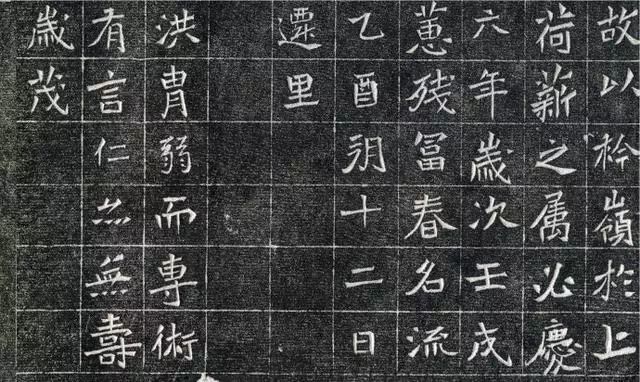 故以矜嶺於上
荷薪之属必慶
六年歲次壬戌
蕙残冨春名流
乙酉朔十二日
遷里
洪胄弱而專術
有言仁亦無壽
歲茂